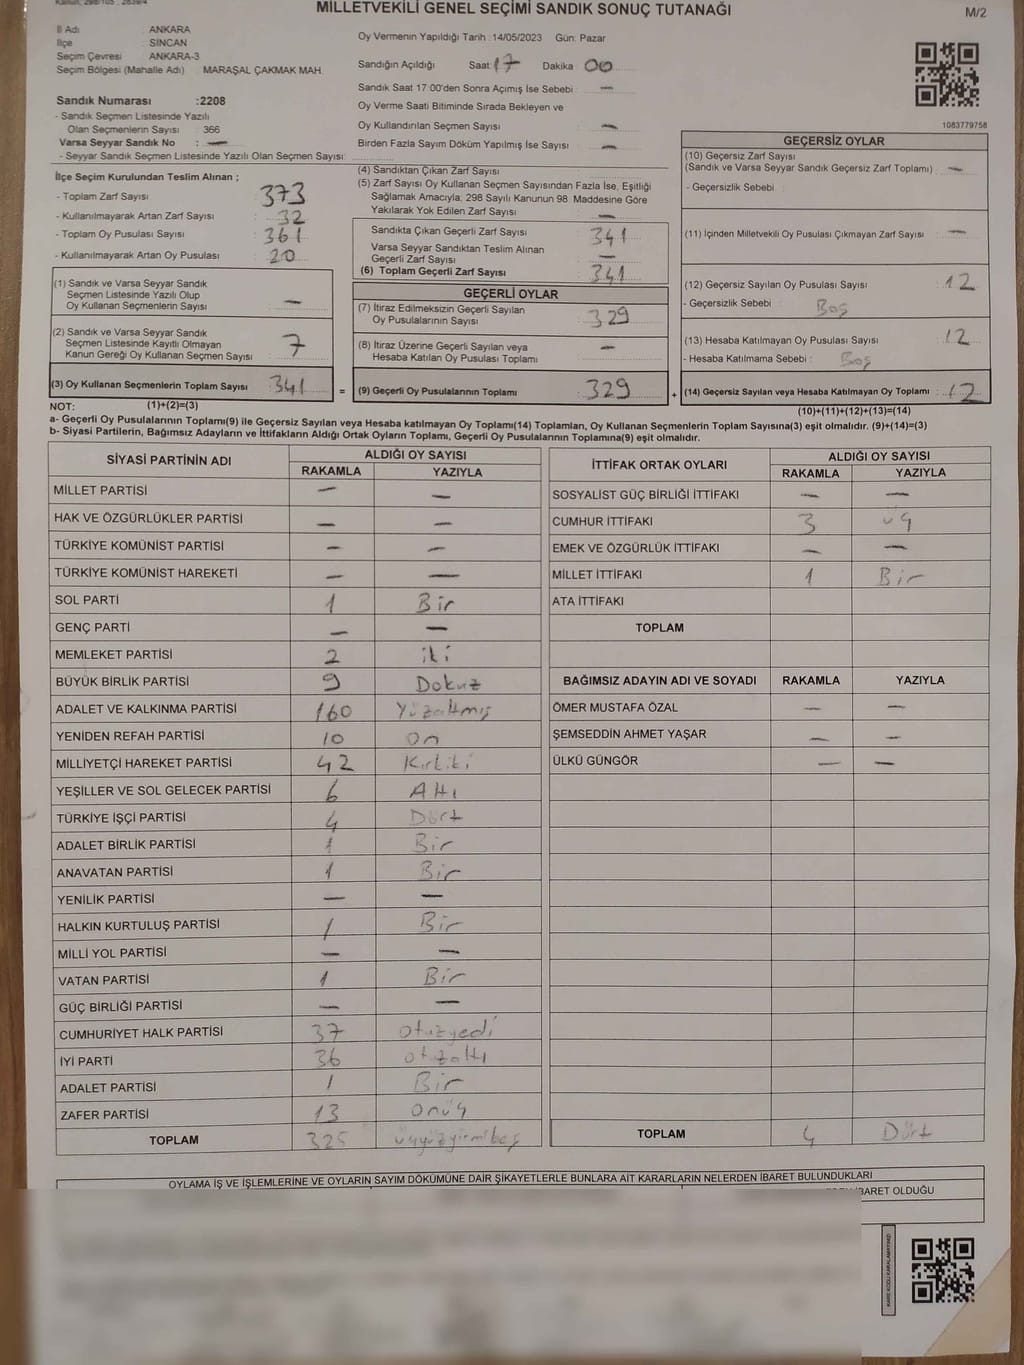 MİLLETVEKİLİ GENEL SEÇİMİ SANDIK SONUÇ TUTANAĞI
M/2
İl Adı : ANKARA
İlçe : SİNCAN
Seçim Çevresi : ANKARA-3
Seçim Bölgesi (Mahalle Adı) : MARAŞAL ÇAKMAK MAH.
Oy Vermenin Yapıldığı Tarih : 14/05/2023 Gün: Pazar
Sandığın Açıldığı Saat 17 Dakika 00
Sandık Saat 17:00'den Sonra Açımış İse Sebebi : —
Oy Verme Saati Bitiminde Sırada Bekleyen ve
Oy Kullandırılan Seçmen Sayısı : —
Birden Fazla Sayım Döküm Yapılmış İse Sayısı : —
Sandık Numarası :2208
- Sandık Seçmen Listesinde Yazılı
Olan Seçmenlerin Sayısı : 366
Varsa Seyyar Sandık No : —
- Seyyar Sandık Seçmen Listesinde Yazılı Olan Seçmen Sayısı:
1083779758
İlçe Seçim Kurulundan Teslim Alınan ;
- Toplam Zarf Sayısı : 373
- Kullanılmayarak Artan Zarf Sayısı : 32
- Toplam Oy Pusulası Sayısı : 361
- Kullanılmayarak Artan Oy Pusulası : 20
(1) Sandık ve Varsa Seyyar Sandık
Seçmen Listesinde Yazılı Olup
Oy Kullanan Seçmenlerin Sayısı : —
(2) Sandık ve Varsa Seyyar Sandık
Seçmen Listesinde Kayıtlı Olmayan
Kanun Gereği Oy Kullanan Seçmen Sayısı : 7
(3) Oy Kullanan Seçmenlerin Toplam Sayısı : 341 =
(4) Sandıktan Çıkan Zarf Sayısı
(5) Zarf Sayısı Oy Kullanan Seçmen Sayısından Fazla İse, Eşitliği
Sağlamak Amacıyla; 298 Sayılı Kanunun 98. Maddesine Göre
Yakılarak Yok Edilen Zarf Sayısı : —
Sandıkta Çıkan Geçerli Zarf Sayısı : 341
Varsa Seyyar Sandıktan Teslim Alınan
Geçerli Zarf Sayısı : —
(6) Toplam Geçerli Zarf Sayısı : 341
GEÇERLİ OYLAR
(7) İtiraz Edilmeksizin Geçerli Sayılan
Oy Pusulalarının Sayısı : 329
(8) İtiraz Üzerine Geçerli Sayılan veya
Hesaba Katılan Oy Pusulası Toplamı : —
(9) Geçerli Oy Pusulalarının Toplamı : 329 +
GEÇERSİZ OYLAR
(10) Geçersiz Zarf Sayısı
(Sandık ve Varsa Seyyar Sandık Geçersiz Zarf Toplamı) : —
- Geçersizlik Sebebi :
(11) İçinden Milletvekili Oy Pusulası Çıkmayan Zarf Sayısı : —
(12) Geçersiz Sayılan Oy Pusulası Sayısı : 12
- Geçersizlik Sebebi : Boş
(13) Hesaba Katılmayan Oy Pusulası Sayısı : 12
- Hesaba Katılmama Sebebi : Boş
(14) Geçersiz Sayılan veya Hesaba Katılmayan Oy Toplamı : 12
NOT: (1)+(2)=(3)
(10)+(11)+(12)+(13)=(14)
a- Geçerli Oy Pusulalarının Toplamı(9) ile Geçersiz Sayılan veya Hesaba katılmayan Oy Toplamı(14) Toplamları, Oy Kullanan Seçmenlerin Toplam Sayısına(3) eşit olmalıdır. (9)+(14)=(3)
b- Siyasi Partilerin, Bağımsız Adayların ve İttifakların Aldığı Ortak Oyların Toplamı, Geçerli Oy Pusulalarının Toplamına(9) eşit olmalıdır.
SİYASİ PARTİNİN ADI ALDIĞI OY SAYISI
RAKAMLA YAZIYLA
MİLLET PARTİSİ — —
HAK VE ÖZGÜRLÜKLER PARTİSİ — —
TÜRKİYE KOMÜNİST PARTİSİ — —
TÜRKİYE KOMÜNİST HAREKETİ — —
SOL PARTİ 1 Bir
GENÇ PARTİ — —
MEMLEKET PARTİSİ 2 iki
BÜYÜK BİRLİK PARTİSİ 9 Dokuz
ADALET VE KALKINMA PARTİSİ 160 Yüzaltmış
YENİDEN REFAH PARTİSİ 10 On
MİLLİYETÇİ HAREKET PARTİSİ 42 Kırkiki
YEŞİLLER VE SOL GELECEK PARTİSİ 6 Altı
TÜRKİYE İŞÇİ PARTİSİ 4 Dört
ADALET BİRLİK PARTİSİ 1 Bir
ANAVATAN PARTİSİ 1 Bir
YENİLİK PARTİSİ — —
HALKIN KURTULUŞ PARTİSİ 1 Bir
MİLLİ YOL PARTİSİ — —
VATAN PARTİSİ 1 Bir
GÜÇ BİRLİĞİ PARTİSİ — —
CUMHURİYET HALK PARTİSİ 37 otuzyedi
İYİ PARTİ 36 otuzaltı
ADALET PARTİSİ 1 Bir
ZAFER PARTİSİ 13 onüç
TOPLAM 325 üçyüzyirmibeş
İTTİFAK ORTAK OYLARI ALDIĞI OY SAYISI
RAKAMLA YAZIYLA
SOSYALİST GÜÇ BİRLİĞİ İTTİFAKI — —
CUMHUR İTTİFAKI 3 üç
EMEK VE ÖZGÜRLÜK İTTİFAKI — —
MİLLET İTTİFAKI 1 Bir
ATA İTTİFAKI
TOPLAM
BAĞIMSIZ ADAYIN ADI VE SOYADI RAKAMLA YAZIYLA
ÖMER MUSTAFA ÖZAL — —
ŞEMSEDDİN AHMET YAŞAR — —
ÜLKÜ GÜNGÖR — —
TOPLAM 4 Dört
OYLAMA İŞ VE İŞLEMLERİNE VE OYLARIN SAYIM DÖKÜMÜNE DAİR ŞİKAYETLERLE BUNLARA AİT KARARLARIN NELERDEN İBARET BULUNDUKLARI
İBARET OLDUĞU
KARE KODU KARALAMAYINIZ!